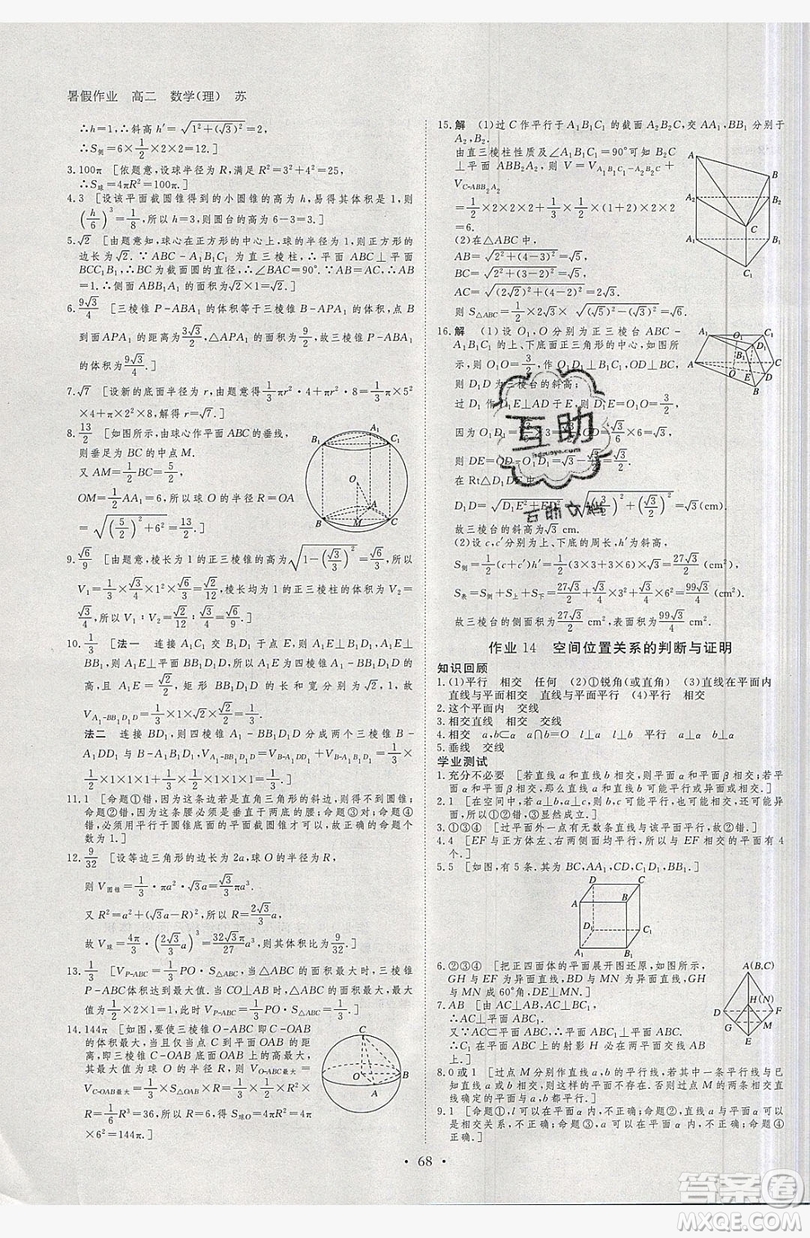 暑假作业 高二 数学(理) 苏
∴h=1,∴斜高 h′=√(1²+(√3)²)=2,
∴S侧=6×1/2×2×2=12.
3.100π [依题意,设球半径为R,满足R²=3²+4²=25,
∴S球=4πR²=100π.]
4.3 [设该平面截圆锥得到的小圆锥的高为h,易得其体积是1,则
(h/6)³=1/8,所以h=3,圆台的高为6-3=3.]
5.√2 [由题意可知,球心在正方形的中心上,球的半径为1,则正方形的
边长为√2.∵ABC-A₁B₁C₁为直三棱柱,∴平面ABC⊥平面
BCC₁B₁,∴BC为截面圆的直径,∴∠BAC=90°.∵AB=AC,∴AB
=1.]
6.9√3/4 [三棱锥P-ABA₁的体积等于三棱锥B-APA₁的体积,点B
到面APA₁的距离为3√3/2,△APA₁的面积为9/2,故三棱锥P-ABA₁
的体积为9√3/4.]
7.√7 [设新的底面半径为r,由题意得1/3πr²·4+πr²·8=1/3π×5²
×4+π×2²×8,解得r=√7.]
8.13/2 [如图,由球心作平面ABC的垂线,
则垂足为BC的中点M.
又AM=1/2BC=5/2,
OM=1/2AA₁=6,所以球O的半径R=OA
=√((5/2)²+6²)=13/2.]
9.√6/9 [由题意,棱长均为1的正三棱锥的高为√(1-(√3/3)²)=√6/3,所
以V₁=1/3×√3/4×√6/3=√2/12,棱长均为1的正三棱柱的体积为V₂=
√3/4,所以V₁∶V₂=√2/12∶√3/4=√6/9.]
10.1/3 [法一 连接A₁C₁交B₁D₁于点E,则A₁E⊥B₁D₁,A₁E⊥
BB₁,则A₁E⊥平面BB₁D₁D,所以A₁E为四棱锥A₁-BB₁D₁D
的高,且A₁E=√2/2,矩形BB₁D₁D的长和宽分别为√2,1,故
V A₁-BB₁D₁D=1/3×1×√2×√2/2=1/3.
法二 连接BD₁,则四棱锥A₁-BB₁D₁D分成两个三棱锥B-
A₁DD₁与B-A₁B₁D₁,V A₁-BB₁D₁D=V B-A₁DD₁+V B-A₁B₁D₁=1/3×1/2
×1×1×1+1/3×1/2×1×1×1=1/3.]
11.1 [命题①错,因为这条边若是直角三角形的斜边,则得不到圆锥;
命题②错,因为这条腰必须是垂直于两底的腰;命题③对;命题④
错,必须用平行于圆锥底面的平面截圆锥才可以.故正确的命题个数
为1.]
12.9/32 [设等边三角形的边长为2a,球O的半径为R,
则V圆锥=1/3·πa²·√3a=√3/3πa³.
又R²=a²+(√3a-R)²,所以R=2√3/3a,
故V球=4π/3·(2√3/3a)³=32√3π/27a³,则其体积比为9/32.]
13.1/3 [V P-ABC=1/3PO·S△ABC,当△ABC的面积最大时,三棱锥
P-ABC体积达到最大值.当CO⊥AB时,△ABC的面积最大,最
大值为1/2×2×1=1,此时V P-ABC=1/3PO·S△ABC=1/3.]
14.144π [如图,要使三棱锥O-ABC即C-OAB
的体积最大,当且仅当点C到平面OAB的距
离,即三棱锥C-OAB底面OAB上的高最大,
其最大值为球O的半径R,则V O-ABC最大=
V C-OAB最大=1/3×1/2×S△OAB×R=1/3×1/2×R²×R=
1/6R³=36,所以R=6,得S球O=4πR²=4π
×6²=144π.]
15.解 (1)过C作平行于A₁B₁C₁的截面A₂B₂C,交AA₁,BB₁分别于
A₂,B₂.
由直三棱柱性质及∠A₁B₁C₁=90°可知B₂C⊥
平面ABB₂A₂,则V=V A₁B₁C₁-A₂B₂C+
V C-ABB₂A₂
=1/2×2×2×2+1/3×1/2×(1+2)×2×2
=6.
(2)在△ABC中,
AB=√(2²+(4-3)²)=√5,
BC=√(2²+(3-2)²)=√5,
AC=√((2√2)²+(4-2)²)=2√3.
则S△ABC=1/2×2√3×√((√5)²-(√3)²)=√6.
16.解 (1)设O₁,O分别为正三棱台ABC-
A₁B₁C₁的上、下底面正三角形的中心,如图
所示,则O₁O=3/2,过O₁作O₁D₁⊥B₁C₁,OD⊥BC,
则D₁D为三棱台的斜高;
过D₁作D₁E⊥AD于E,则D₁E=O₁O=3/2,
因为O₁D₁=√3/6×3=√3/2,OD=√3/6×6=√3,
则DE=OD-O₁D₁=√3-√3/2=√3/2.
在Rt△D₁DE中,
D₁D=√(D₁E²+ED²)=√((3/2)²+(√3/2)²)=√3(cm).
故三棱台的斜高为√3 cm.
(2)设c,c′分别为上、下底的周长,h′为斜高,
S侧=1/2(c+c′)h′=1/2(3×3+3×6)×√3=27√3/2(cm²),
S表=S侧+S上+S下=27√3/2+√3/4×3²+√3/4×6²=99√3/4(cm²).
故三棱台的侧面积为27√3/2 cm²,表面积为99√3/4 cm².
作业 14 空间位置关系的判断与证明
知识回顾
1.(1)平行 相交 任何 (2)①锐角(或直角) ②平行 相交 直线在平面内
直线与平面平行 直线与平面相交 (4)平行 相交
2.这个平面内 交线
3.相交直线 交线 4.相交 a,b⊂α a∩b=O l⊥a l⊥b 平行
5.垂线 交线
学业测试
1.充分不必要 [若直线a和直线b相交,则平面α和平面β相交;若平
面α和平面β相交,那么直线a和直线b可能平行或异面或相交.]
2.1 [在空间中,若a⊥b,a⊥c,则b,c可能平行,也可能相交,还可能异
面,所以①②错,③显然成立.]
3.①③④ [过平面外一点有无数条直线与该平面平行,故②错.]
4.4 [EF与正方体左、右两侧面平行,与其余4个平面相交.]
5.5 [如图,有5条.其中BC,AA₁,CD₁,C₁D₁,BB₁]
6.②③④ [把正四面体的平面展开图还原,如
图所示,GH与EF为异面直线,BD与MN为
异面直线,GH与MN成60°角,DE⊥MN.]
7.AB [因为AC⊥AB,AC⊥BC₁,AB∩BC₁=B,
∴AC⊥平面ABC₁.
又∵AC⊂平面ABC,∴平面ABC₁⊥平面ABC,
∴C₁在平面ABC上的射影H必在两平面交线
AB上.]
8.0或1 [过点M分别作直线a,b的平行线,若其中一条平行线与已
知直线a或b相交,则这样的平面不存在,否则过点M的两条相交直
线确定的平面与a,b都平行.]
9.1 [命题①l可以在平面α内,不正确;命题②直线a与平面α可以
是相交关系,不正确;命题③a可以在平面α内,不正确;命题④正
确.]
· 68 ·
互助
百助文档
答案卷
MXQE.COM